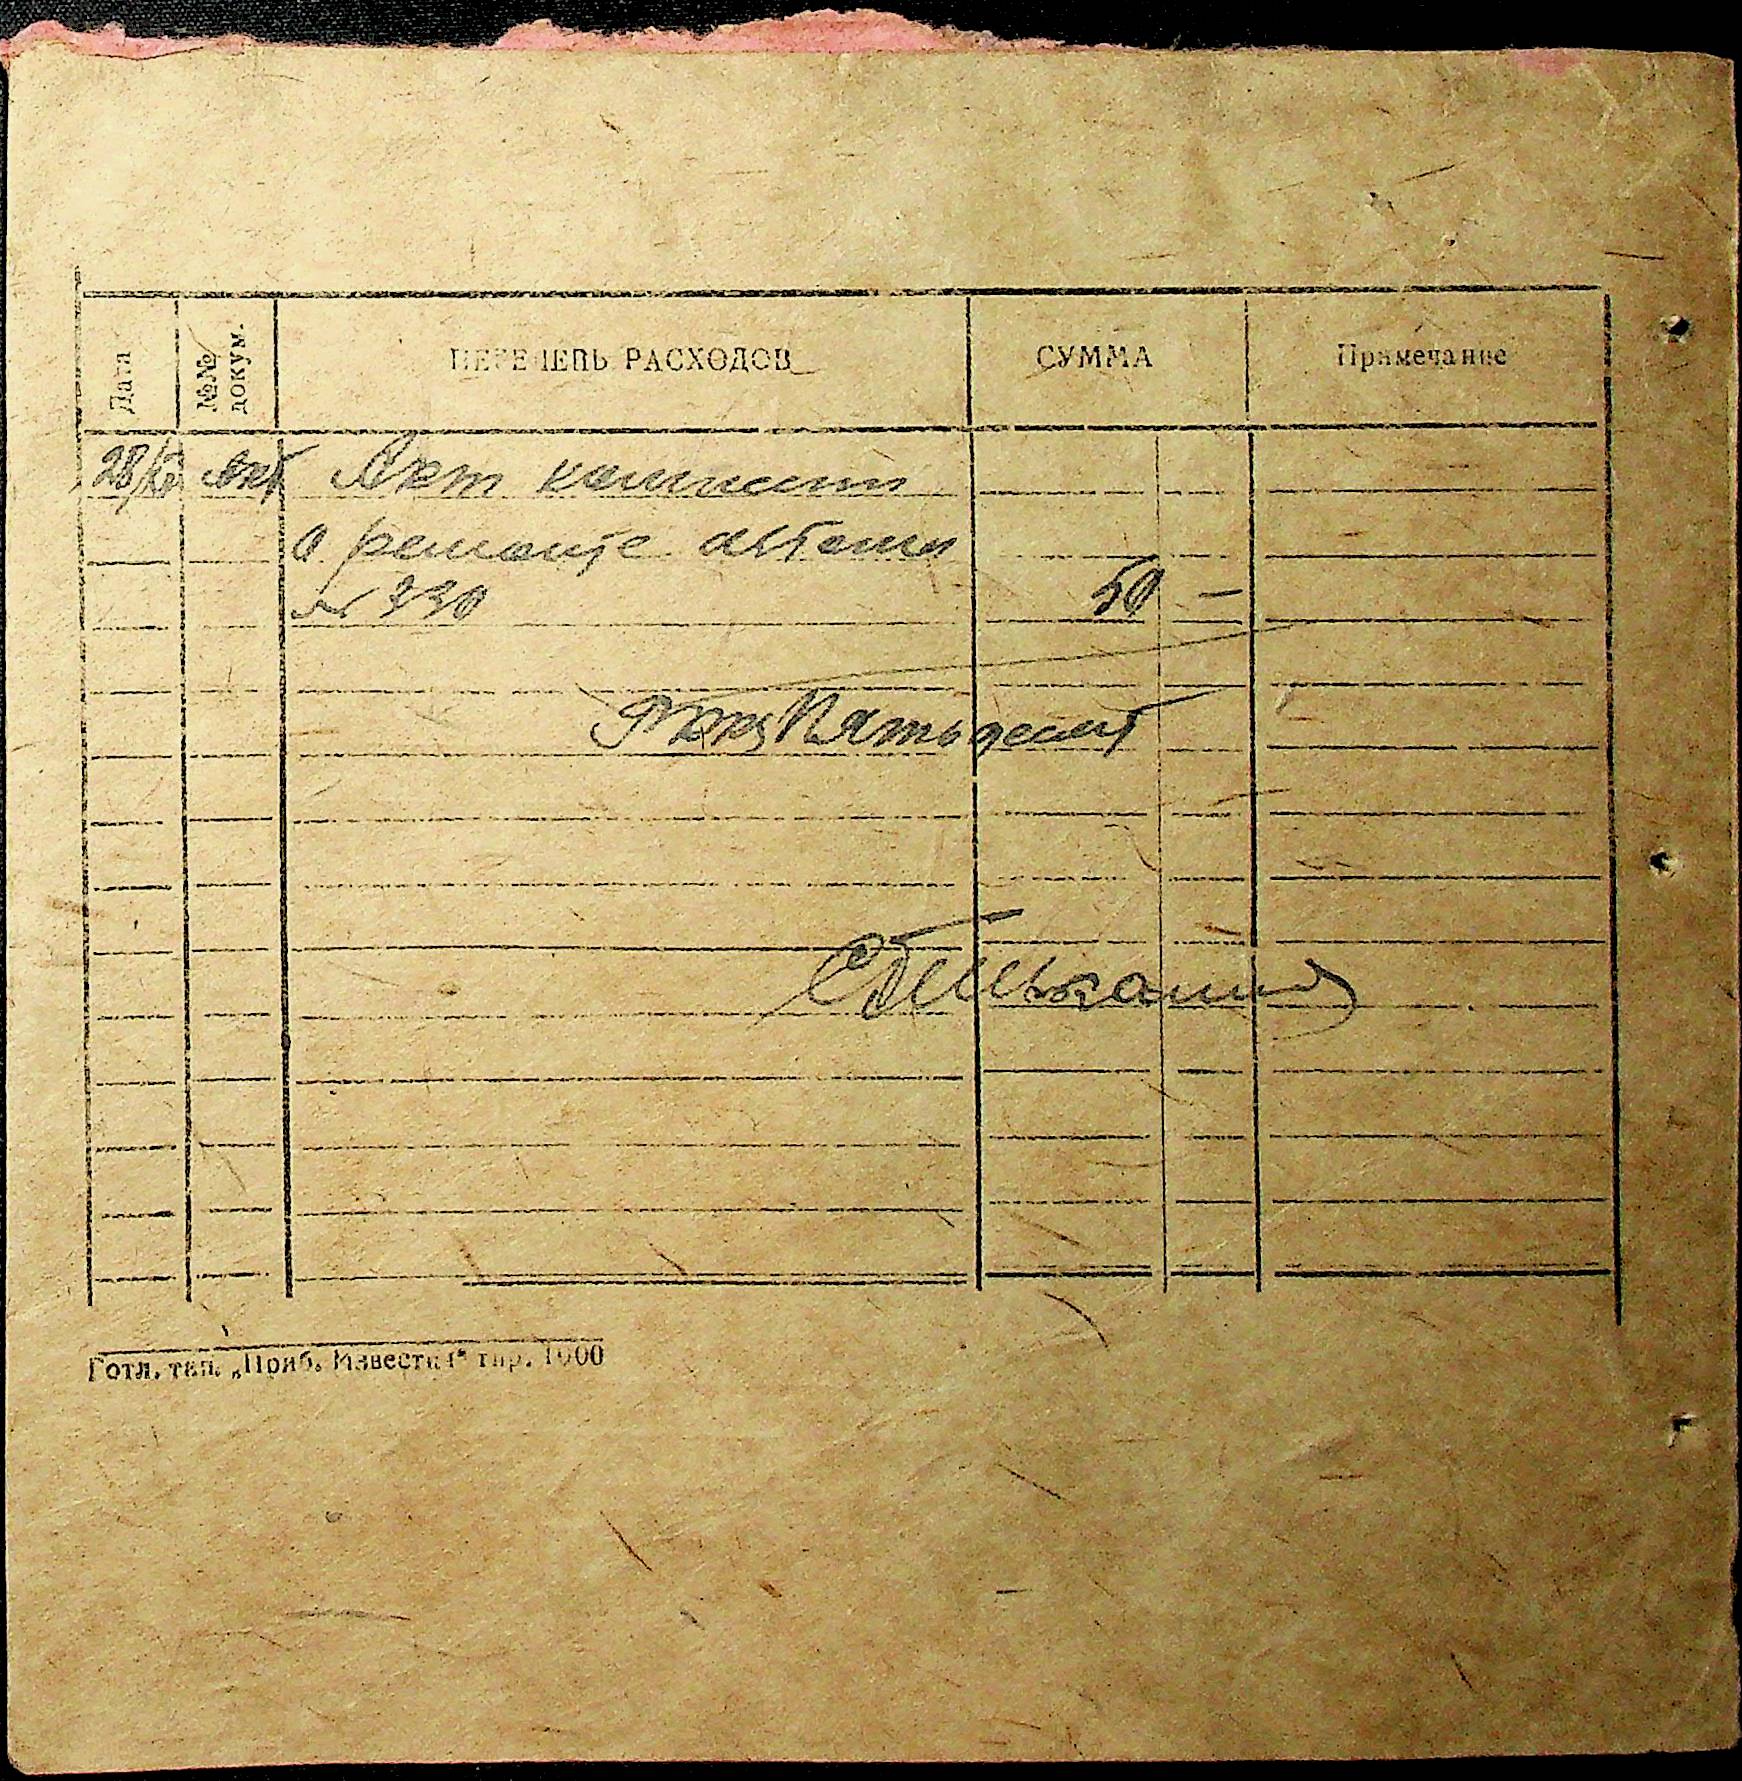 Дата
№№ докум.
ПЕРЕЧЕНЬ РАСХОДОВ
СУММА
Примечание
28/ акт Акт комиссии
о ремонте автома
№ 330 50 —
Пятьдесят
Готл. тип. „Приб. Известия“ тир. 1000